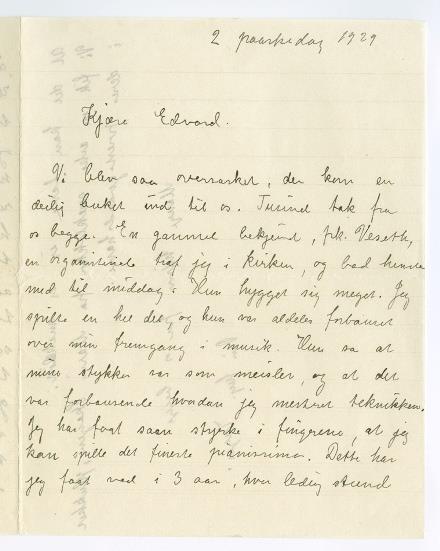 2 paaskedag 1929
Kjære Edvard.
Vi blev saa overrasket, der kom en
deilig buket ind til os. Tusind tak fra
os begge. En gammel bekjendt, frk. Veseth,
en organistinde traf jeg i kirken, og bad hende
med til middag. Hun hygget sig meget. Jeg
spilte en hel del og hun var aldeles forbauset
over min fremgang i musik. Hun sa at
mine stykker var som meisler, og at det
var forbausende hvordan jeg mestret teknikken.
Jeg har faat saan styrke i fingrene, at jeg
kan spille det fineste pianissimo. Dette har
jeg faat ved i 3 aar, hver ledig stund